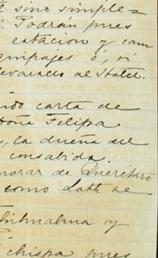 sino simple=
Podrán pues
estación y cam
quipajes ó, si
evarselos al Hotel.
ndo carta de
oña Felipa
, la dueña del
consabida.
morar de Querétaro
como Loth de
hihualhua y
chispa pues